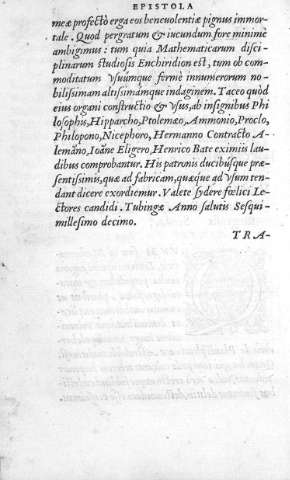 EPISTOLA
meæ profectò erga eos beneuolentiæ pignus immor-
tale. Quod pergratum & iucundum fore minimè
ambigimus: tum quia Mathematicarum disci-
plinarum studiosis Enchiridion est, tum ob com-
moditatum vsuúmque fermè innumerorum no-
bilissimam altissimámque indaginem. Taceo quòd
eius organi constructio & vsus, ab insignibus Phi
losophis, Hipparcho, Ptolemæo, Ammonio, Proclo,
Philopono, Nicephoro, Hermanno Contracto A-
lemãno, Ioãne Eligero, Henrico Bate eximiis lau-
dibus comprobantur. His patronis ducibúsque præ-
sentissimis, quæ ad fabricam, quæque ad vsum ten-
dant dicere exordiemur. Valete sydere fœlici Le-
ctores candidi. Tubingæ Anno salutis Sesqui-
millesimo decimo.
TRA-